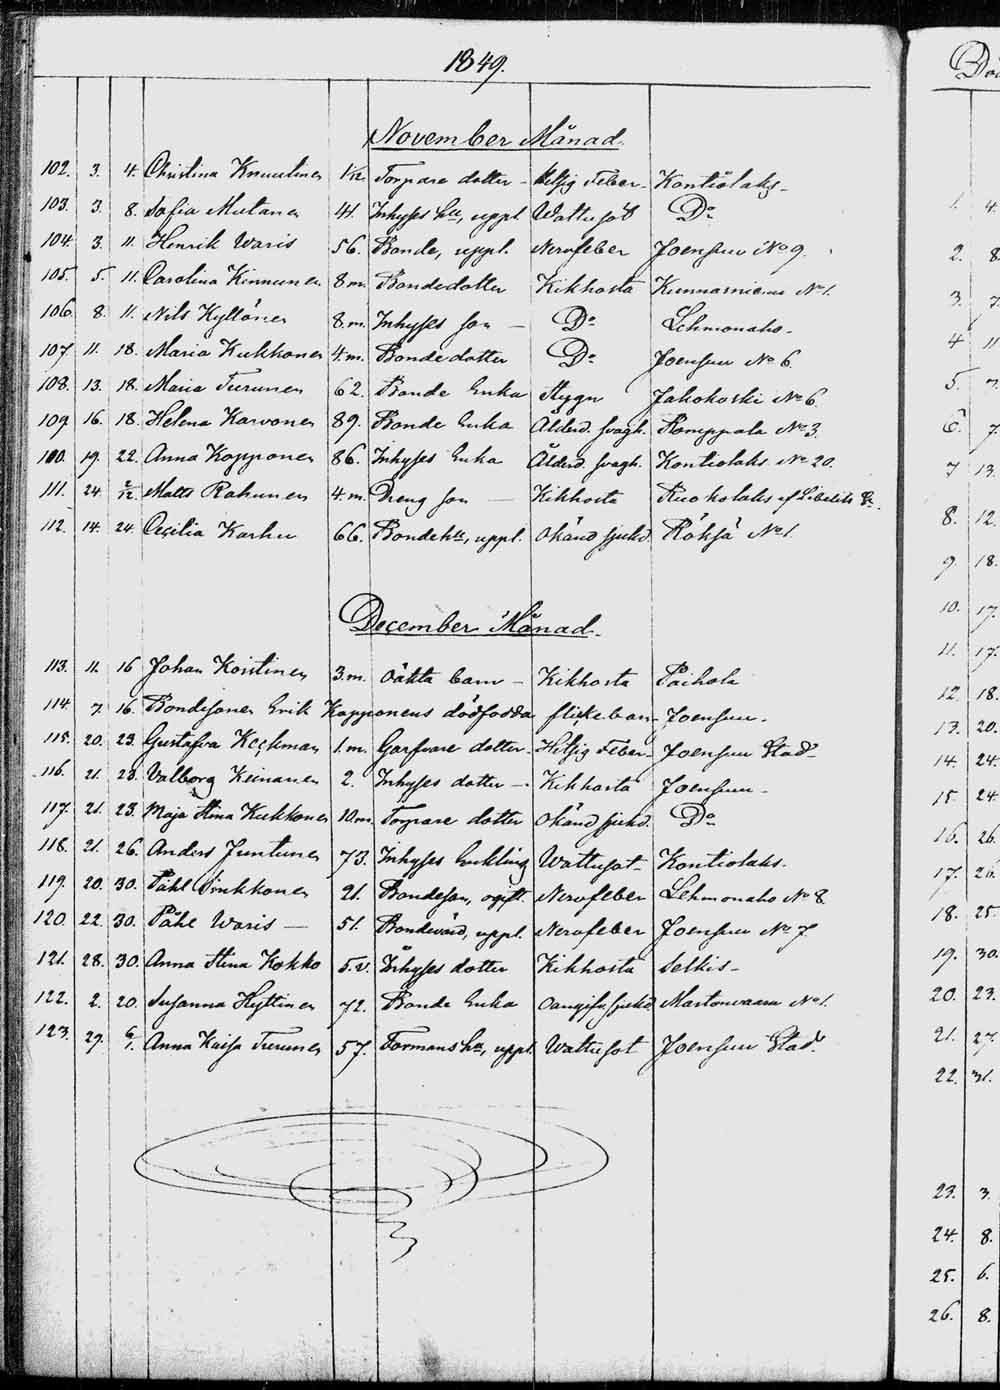 1849.
November Månad.
102. 3. 4. Christina Knuutinen 1/12 Torpare dotter - Hetsig Feber - Kontiolaks -
103. 3. 8. Sofia Mutanen 41. Inhyses hu, uppl Wattusot Do
104. 3. 11. Henrik Waris 56. Bonde, uppl. Nervfeber Joensuu No 9.
105. 5. 11. Carolina Kinnunen 8 m. Bondedotter Kikhosta No 1.
106. 8. 11. Nils Kyllönen 8. m. Inhyses son - Do Lehmonaho -
107. 11. 18. Maria Kukkonen 4. m. Bonde dotter Do Joensuu No 6.
108. 13. 18. Maria Turunen 62. Bonde Enka Stygn Jakokoski No 6.
109 16. 18. Helena Karvonen 89. Bonde Enka Ålderd. svagh. Romppala No 3.
100. 19. 22. Anna Kopponen 86. Inhyses Enka Ålderd. svagh. Kontiolaks No 20.
111. 24. 2/12. Matts Rahunen 4. m. Dreng son - Kikhosta Ruokolaks af Libelits
112. 14. 24. Cecilia Karhu 66. Bonde hu, uppl. Okänd sjukd. Röksä No 1.
December Månad.
113. 11. 16 Johan Kostinen 3. m. Oäkta barn - Kikhosta Paihola
114. 7. 16. Bondesonen Erik Kopponens dödfödda flickebarn - Joensuu -
115. 20. 23. Gustafva Keckman 1. m. Garfvare dotter - Hetsig Feber - Joensuu Stad -
116. 21. 23. Valborg Keinanen 2. Inhyses dotter - Kikhosta Joensuu -
117. 21. 23. Maja Stina Kukkonen 10 m. Torpare dotter Okänd sjukd. Do
118. 21. 26. Anders Juntunen 73. Inhyses Enkling Wattusot - Kontiolaks.
119. 20. 30. Påhl Sinkkonen 21. Bondeson, ogift. Nervfeber Lehmonaho No 8
120. 22. 30. Påhl Waris - 51. Bondevärd, uppl. Nervfeber Joensuu No 7.
121. 28. 30. Anna Stina Kokko 5. v. Inhyses dotter Kikhosta Selkis -
122. 2. 20. Susanna Hyttinen 72. Bonde Enka Oangifn sjukd. Martonvaara No 1.
123. 29. 6/1. Anna Kaisa Turunen 57. Formans hu, uppl. Wattusot Joensuu Stad.
1. 4.
2. 8.
3. 7.
4 11
5. 7.
6. 7.
7 13.
8. 12.
9. 18.
10. 17.
11. 17.
12. 18.
13. 20.
14. 24.
15. 24.
16. 26.
17. 26.
18. 25.
19. 30.
20. 23.
21. 27.
22. 31.
23. 3.
24. 8.
25. 6.
26. 8.